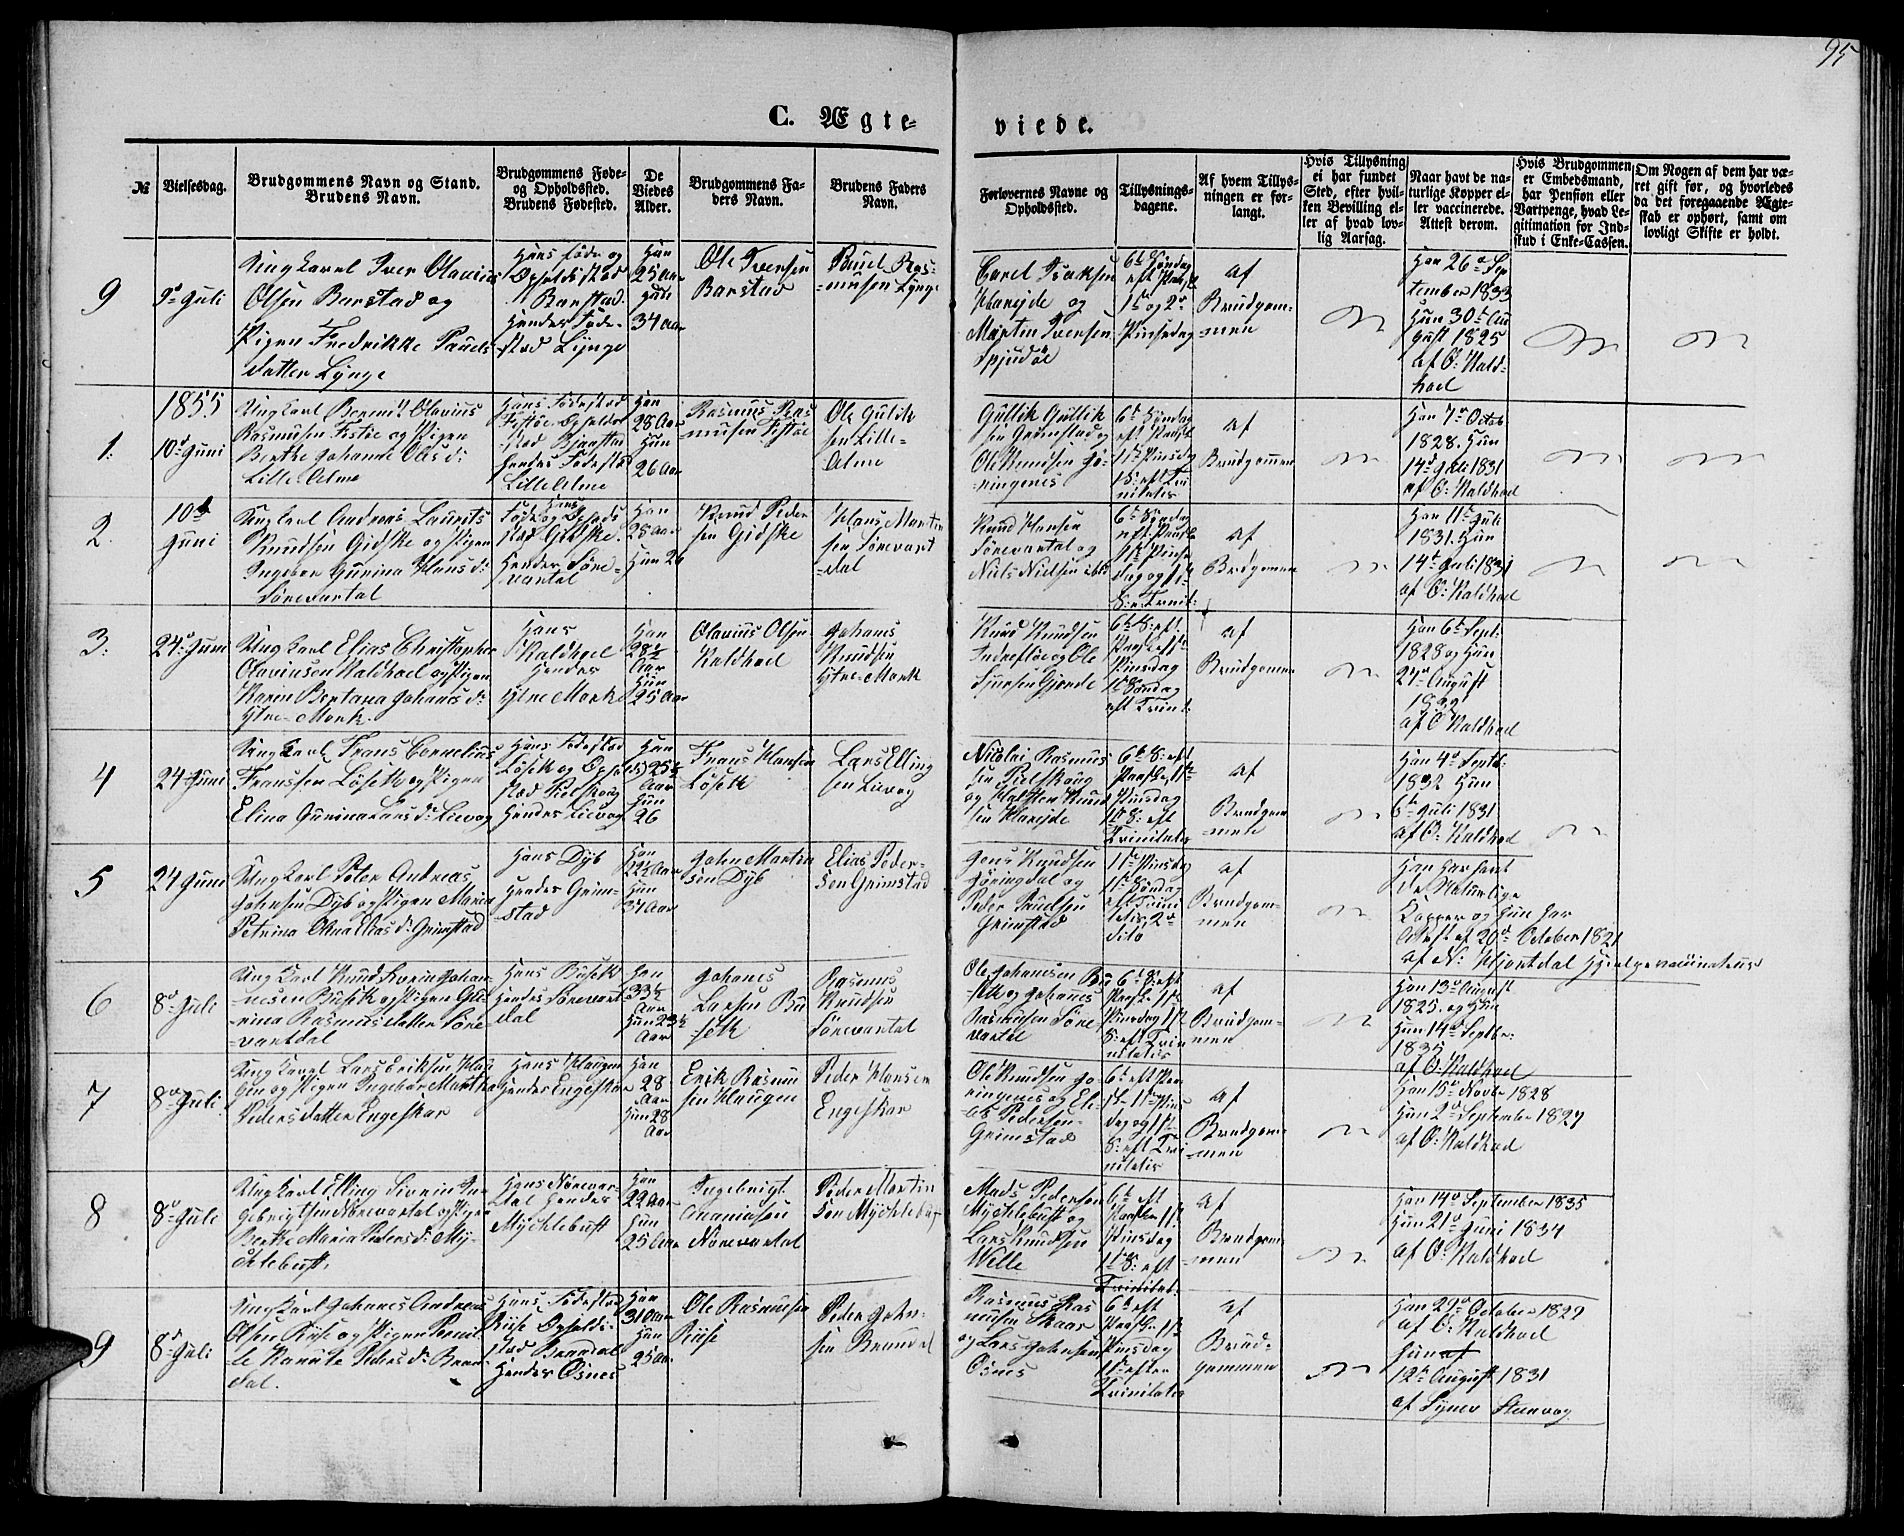 95
C. Ægte-
viede.
№
Vielsesdag.
Brudgommens Navn og Stand.
Brudens Navn.
Brudgommens Føde-
og Opholdssted.
Brudens Fødested.
De
Viedes
Alder.
Brudgommens Fa-
ders Navn.
Brudens Faders
Navn.
Forlovernes Navne og
Opholdssted.
Tillysnings-
dagene.
Af hvem Tillys-
ningen er for-
langt.
Hvis Tillysning
ei har fundet
Sted, efter hvil-
ken Bevilling el-
ler af hvad lov-
lig Aarsag.
Naar havt de na-
turlige Kopper el-
ler vaccinerede.
Attest derom.
Hvis Brudgommen
er Embedsmand,
har Pension eller
Vartpenge, hvad Le-
gitimation for Ind-
skud i Enke-Cassen.
Om Nogen af dem har væ-
ret gift før, og hvorledes
da det foregaaende Ægte-
skab er ophørt, samt om
lovligt Skifte er holdt.
9
9de Juli
Ungkarl Iver Olavius
Olsen Barstad og
Pigen Fredrikke Pauels
datter Lynge
Hans Føde og
Opholdsstad
Barstad.
Hendes Føde-
stad Lynge
Han
25 Aar
Hun
34 Aar
Ole Iversen
Barstad
Pauel Ras-
musen Lynge
Carel Isaksen
Hareide og
Martin Iversen
6te Søndag
eft Paaske
1ste og 2den
Pinsedag
af
Brudgom-
men
Han 26de Sep
tember 1833
Hun 30te Au
gust 1825
af O: Kald-
hoel
1855
1.
10de Juni
Ungkarl Berent Olavius
Rasmusen Festøe og Pigen
Berthe Johanne Olis d:
Lille Alme
Hans Fødestad
Festøe Opholds
stad Bjarstad
Hendes Fødestd
Lille Alme
Han
28 Aar
Hun
26 Aar
Rasmus Ras
musen Festøe
Ole Gulik
sen Lille-
Alme
Gullik Gullik
sen Grimstad og
Ole Knudsen Jø-
ringenes
6te Søndag
eft Paaske
1ste Pinsdag
1S: eft Tri
nitatis
af
Brudgommen
Han 7de Octob
1828. Hun
14de Juli 1831
af O: Kaldhoel
2.
10de
Juni
Ungkarl Andreas Laurits
Knudsen Gidske og Pigen
Ingebor Gurina Hans d:
Sørevartal
Hans
Føde og Opholds
stad Gidske.
Hendes Søre-
vartal
Han
25 Aar
Hun 26
Knud Peder
sen Gidske
Hans Martin
sen Sørevart
dal
Knud Hansen
Sørevartal og
Niels Nielsen ibid
6te Søndag
eft: Paaske
1ste Pinse
dag og 1ste
S: e Trinit:
af
Brudgommen
Han 11te Juli
1831. Hun
14de Juli 1831
af O: Kaldhoel
3:
24de Juni
Ungkarl Elias Christopher
Olaviusen Kaldhoel og Pigen
Karen Bertana Johanes d:
Ytre-Mork.
Hans
Kaldhoel
Hendes
Ytre Mork
Han
28½
Aar
Hun
25 Aar
Olavius Olsen
Kaldhoel
Johanes
Knudsen
Ytre-Mork
Knud Knudsen
Indrefløe og Ole
Sjursen Gjerde
6te S: eft.
Paaske 1ste
Pinsdag
1ste Søndag
eft Trinit:
af
Brudgommen
Han 6te Sept:
1828 og Hun
27de August
1832
af O: Kaldhoel
4
24 Juni
Ungkarl Frans Cornelius
Fransen Løseth og Pigen
Elina Gurina Lars d: Lievog
Hans Fødestad
Løseth og Ophol
stad Pilskog
Hendes Lievog
Han
25½
Aar
Hun
26
Frans Hansen
Løseth
Lars Elling
sen Lievog
Nicolai Rasmus
sen Pilskoug
og Halsten Knud
sen Hareide
6te S: eft
Paaske 1ste
Pinsdag
1ste S: eft
Trinitatis
af
Brudgom
mene
Han 4de Septb:
1832 Hun
6te Juli 1831
af O: Kaldhoel
5
24 Juni
Ungkarl Peter Andreas
Johnsen Dyb og Pigen Maria
Petrina Olena Elias d: Grimstad
Hans Dyb
Hendes Grim-
stad
Han
22½ Aar
Hun
34 Aar
John Martin
sen Dyb
Elias Peder-
sen Grimstad
Jens Knudsen
Jøringdal og
Peder Pauelsen
Grimstad
1ste Pinsdag
1ste Søndag
eft Trini
tatis, 2den
dito
af
Brudgom-
men
Han har havt
de Naturlige
Kopper og Hun har
Attest af 20de October 1821
af N: Hjortdal Hjelpevaccinateur
6
8de Juli
Ungkarl Knud Severin Johan-
nesen Buseth og Pigen Gu-
rina Rasmusdatter Søre
vartdal
Hans Buseth
Hendes Sørevart
dal
Han
33½
Aar
Hun 23½
Aar
Johanes
Larsen Bu
seth
Rasmus
Knudsen
Sørevartal
Ole Johanesen Bu
seth og Johannes
Rasmusen Søre
vartal
6te S: eft
Paaske 1ste
Pinsdag 1ste
S: eft Trin
nitatis
af
Brudgom-
men
Han 13de August
1825. og Hun
Hun 14de Septbr:
1835
af O: Kaldhoel
7
8de Juli
Ungkarl Lars Eriksen Hau
gen og Pigen Ingebor Martha
Pedersdatter Engeskar
Hans Haugen
Hendes Engeskar
Han
28
Aar
Hun 28
Aar
Erik Rasmu
sen Haugen
Peder Hansen
Engeskar
Ole Knudsen Jø-
ringenes og Eli-
as Pedersen
Grimstad
6te eft Paa-
1ste Pins
dag og 1ste
S: eft Tri-
nitatis
af
Brudgom-
men
Han 15de Novbr 1828
Hun 2den September 1827
af O: Kaldhoel
8
8de Juli
Ungkarl Elling Sivrin In-
gebrigtsen Nørevartal og Pigen
Berthe Maria Peders d: My-
chlebust.
Hans Nørevar-
dal Hendes
Mychlebust
Han
22 Aar
Hun
25 Aar
Ingebrigt
Ananiasen
Nørevartal
Peder Martin
sen Mychlebust
Mads Pedersen
Mychlebust og
Lars Knudsen
Welle
6te eft
Paaske 1ste
Pinsdag
1ste S: eft
Trinitat:
af
Brudgom-
men
Han 14de September 1835
Hun 21de Juni 1834
af O: Kaldhoel
9
8de Juli
Ungkarl Johanes Andreas
Olsen Riise og Pigen Pernil-
le Kanute Peders d: Bran-
dal.
Hans Fødestad
Riise Opholds-
stad Brandal
Hendes Osnes
Han
31 Aar
Hun
25 Aar
Ole Rasmusen
Riise
Peder John-
sen Brandal
Rasmus Ras
musen Skaar
og Lars Johnsen
Osnes
6te eft
Paaske 1ste
Pinsdag
1ste efter
Trinitatis
af
Brud-
gommen
Han 29de October 1829
af O: Kaldhoel
Hun af
12te August 1831
af Synev Steenvog